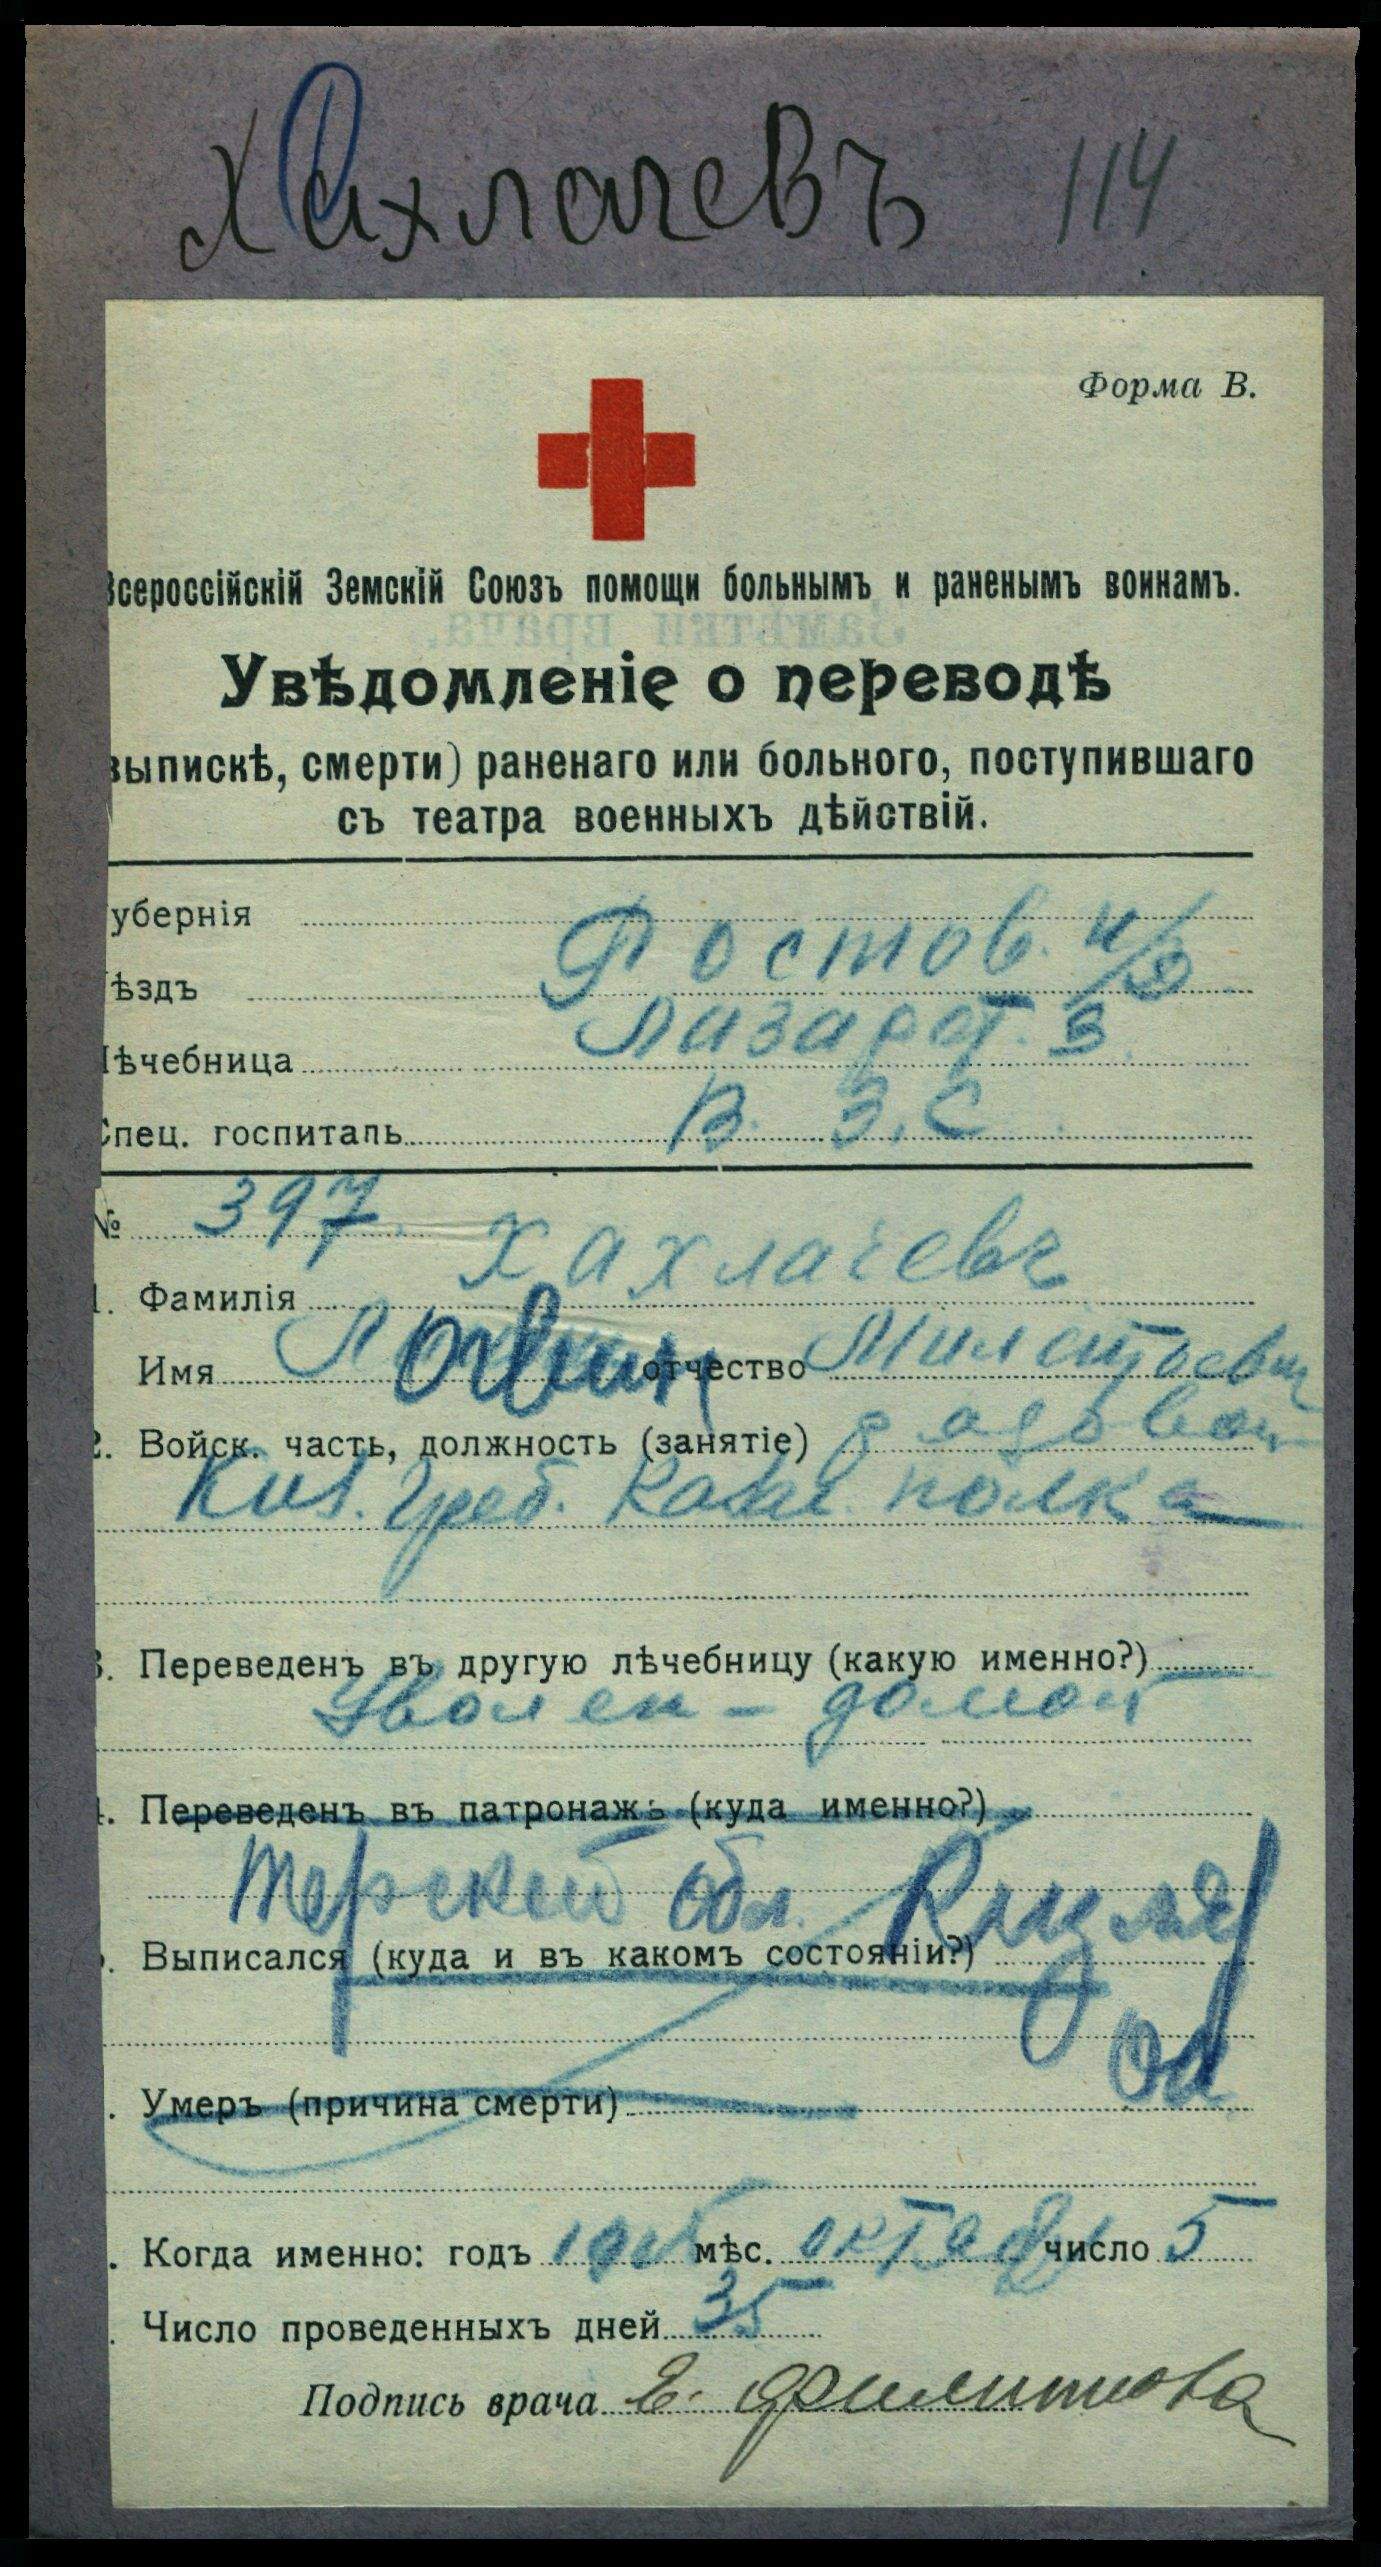 Хахлачевъ 114
Форма В.
Всероссійскій Земскій Союзъ помощи больнымъ и раненымъ воинамъ.
Увѣдомленіе о переводѣ
выпискѣ, смерти) раненаго или больного, поступившаго
съ театра военныхъ дѣйствій.
убернія Ростов. н/Д
ѣздъ
ѣчебница Лазарет. 3
Спец. госпиталь В. З. С
№ 397.
1. Фамилія Хахлачевъ
Имя Логвин отчество Милентьевич
2. Войск. часть, должность (занятіе) рядовой
Киз. Греб. Казач. полка
3. Переведенъ въ другую лѣчебницу (какую именно?)
Уволен - домой
4. Переведенъ въ патронажъ (куда именно?)
Терской Обл. Кизляр
. Выписался (куда и въ какомъ состояніи?)
. Умеръ (причина смерти)
. Когда именно: годъ 1915 мѣс. октяб число 5
. Число проведенныхъ дней 35
Подпись врача Е. Филиппова